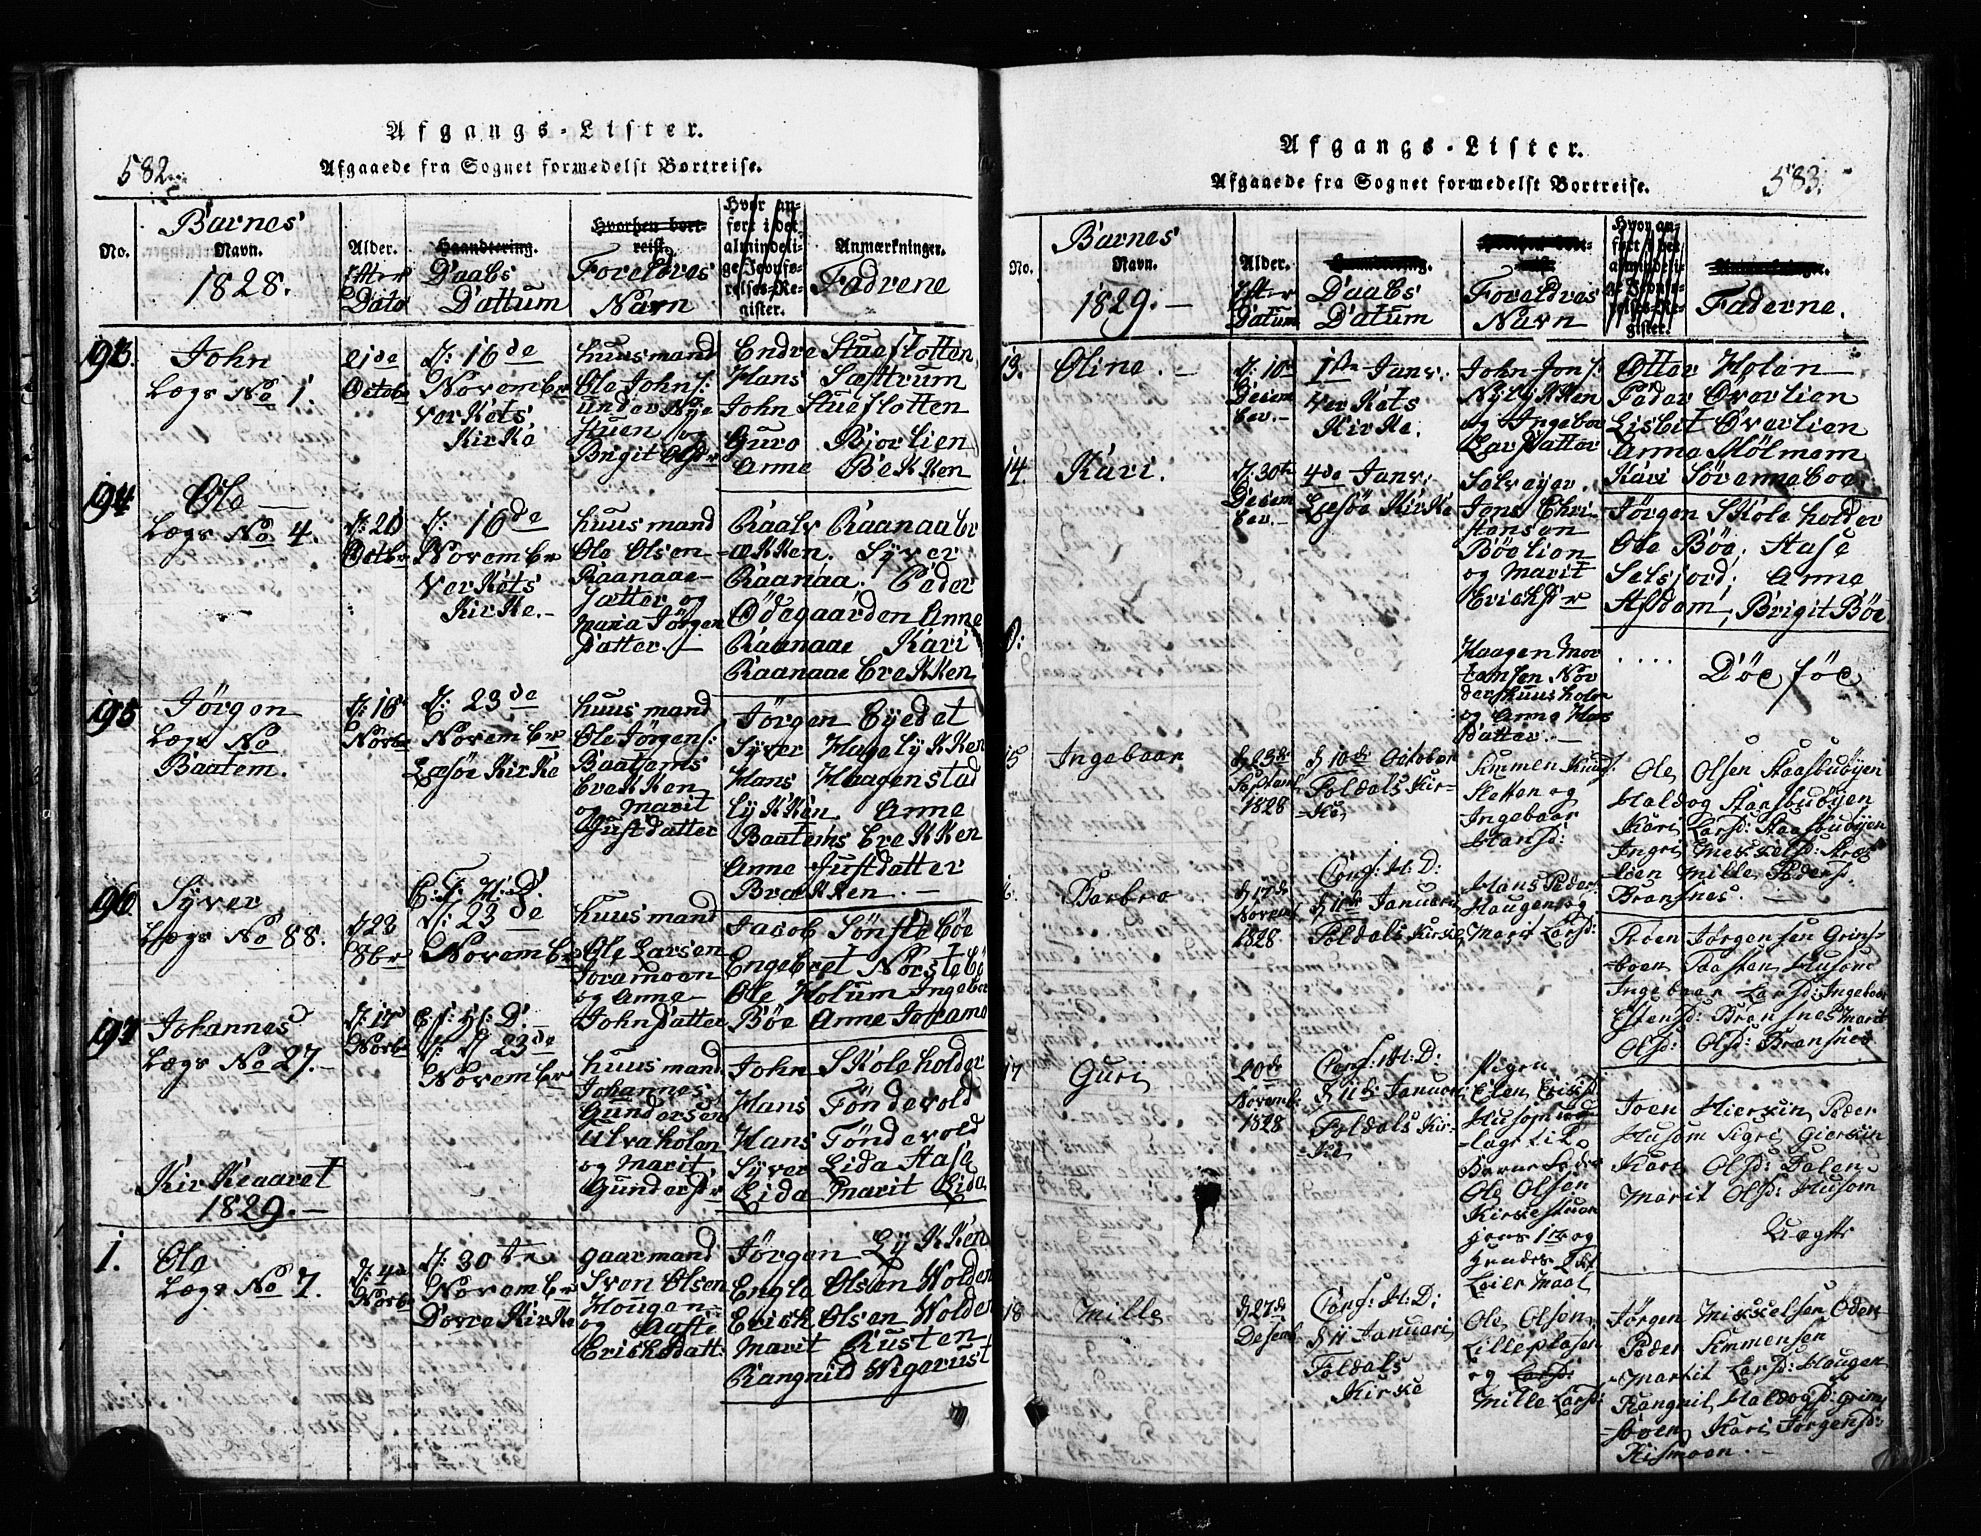 582.
Afgangs-Lister.
Afgaaede fra Sognet formedelst Bortreise.
No.
Barnes
Navn.
1828.
Alder.
Efter
Dato
Haandtering.
Daabs
Dattum
Hvorhen bort-
reist.
Foreldres
Navn
Hvor an-
ført i det
almindeli-
ge Jevnfø-
relses-Re-
gister.
Anmærkninger.
Fadrene
193.
John
Lægs No 1.
21de
Octobr
d: 16de
November
Verkets
Kirke
huusmand
Ole Johns:
under Nye
stuen og
Brigit Olsdr
Endre Stueflotten
Hans Sæsttrum
John Stueflotten
Guro Biorlien
Anne Bekken
194
Ole
Lægs No 4.
d: 21
Octbr
d: 16de
November
Verkets
Kirke.
huusmand
Ole Olsen
Raanaae-
sætter og
Maria Jörgen
Datter.
Raals Raanaabr
ækken. Syver
Raanaa. Peder
Ödegaarden Anne
Raanaae Kari
Raanaae Brekken
195
Jörgen
Lægs No
Baatem.
d: 16
Novbr
d: 23de
November
Læsöe Kirke
huusmand
Ole Jörgens:
Baattems
Brekken
og Marit
Justdatter
Jörgen Byedet
Syver Hagelykken
Hans Haagenstad
Lykken Anne
Baatems Brekken
Anne Justdatter
Brækken.
196
Syver
Lægs No 88.
d 28
8br
C. F. H: D.
d: 23de
November
huusmand
Ole Larsen
Joramoen
og Anne
Johnsdatter
Jacob Sönsteböe
Engebret Norstebö
Ole Holum Ingebor
Böe Anne Joramo
197
Johannes
Lægs No 27.
d 17
Novbr
C: F: H: D:
d: 23de
November
huusmand
Johannes
Gundersen
Ulvaholen
og Marit
Gundersdr
John Skoleholder
Hans Töndevold
Hans Töndevold
Syver Lida Stase
Lida Marit Lida
Kirkeaaret
1829.
1.
Ole
Lægs No 7.
d: 4d
Novbr
d: 30te
November
Dovre Kirke
gaarmand
Sven Olsen
Hougen
og Aaste
Ericksdatt.
Jörgen Lykken
Engle Olsen Wolden
Erick Olsen Wolden
Marit Rusten
Rangnild Wigerust
583.
Afgangs-Lister.
Afgaaede fra Sognet formedelst Bortreise.
No.
Barnes
Navn.
1829.
Alder.
Efter
Datum
Daabs
Datum
Foreldres
Navn
Hvor an-
ført i det
almindeli-
ge Jevnfø-
relses-Re-
gister.
Faderne.
13.
Oline.
d: 10de
Decem
ber.
1ste Janv:
Verkets
Kirke.
John Jons:
Nylykken
og Ingebor
Larsdatter
Otter Holen
Peder Överlien
Lisbet Överlien
Anne Mölmem
Kari Sörenneboe
14.
Kari.
d: 30te
Decem
ber.
4de Janv:
Læsöe Kirke
Selveyer.
Jens Chri-
stensen
Böelien
og Marit
Erichsdr
Jörgen Skoleholder
Ole Böe, Stase
Selsjord; Anne
Asldem; Brigit Böe
Haagen Mor
tensen Nör
derhuusholen
og Anne Hans
Datter.
Döe föe
15
Ingebaar
d 23de
Septemb
1828
d 10de October
Foldals Kir-
ke
Simmen Knuds:
Sletten og
Ingebaar
Hansd:
Ole Olsen Staasbuöyen
Haldog Staasbuöyen
Kari Larsd: Staasbuöyen
Ingri Mickelsd: Strøm
lien Mille Pedersd
Brænsnes.
6.
Barbro
d 17de
Novemb
1828
Conf: H: D:
d 11te Januarii
Foldals Kirke
Hans Peders:
Haugen og
Marit Larsd:
Steen Jörgensen Grims-
boen Paasten Husom
Ingebaar Larsd: Ingebaar
Estensd: Brænsnes Marit
Olsd: Olsd: Brænsnes
17
Guri
20de
Novembr
1828
Conf: H: D:
d 11te Januarii
Foldals Kir-
ke
Pigen
Elen Erichsd
Husom
Barne Fader
Ole Olsen
Leiermaal
Joen Hierkin Peder
Husom Sigri Gierkin
Kari Olsd: Dalen
Marit Olsd: Husom
Uægte
18
Mille
d 27de
Desemb
Conf: H: D:
d 11 Januarii
Foldals
Kirke
Ole Olsen
Lilleplasen
og Larsd:
Mille Larsd:
Jörgen Mickelsen
Peder Simmensen
Marit Larsd: Haugen
Rangnil Haldogsd: Grim
sboen Kari Jörgensd:
Kismoen.